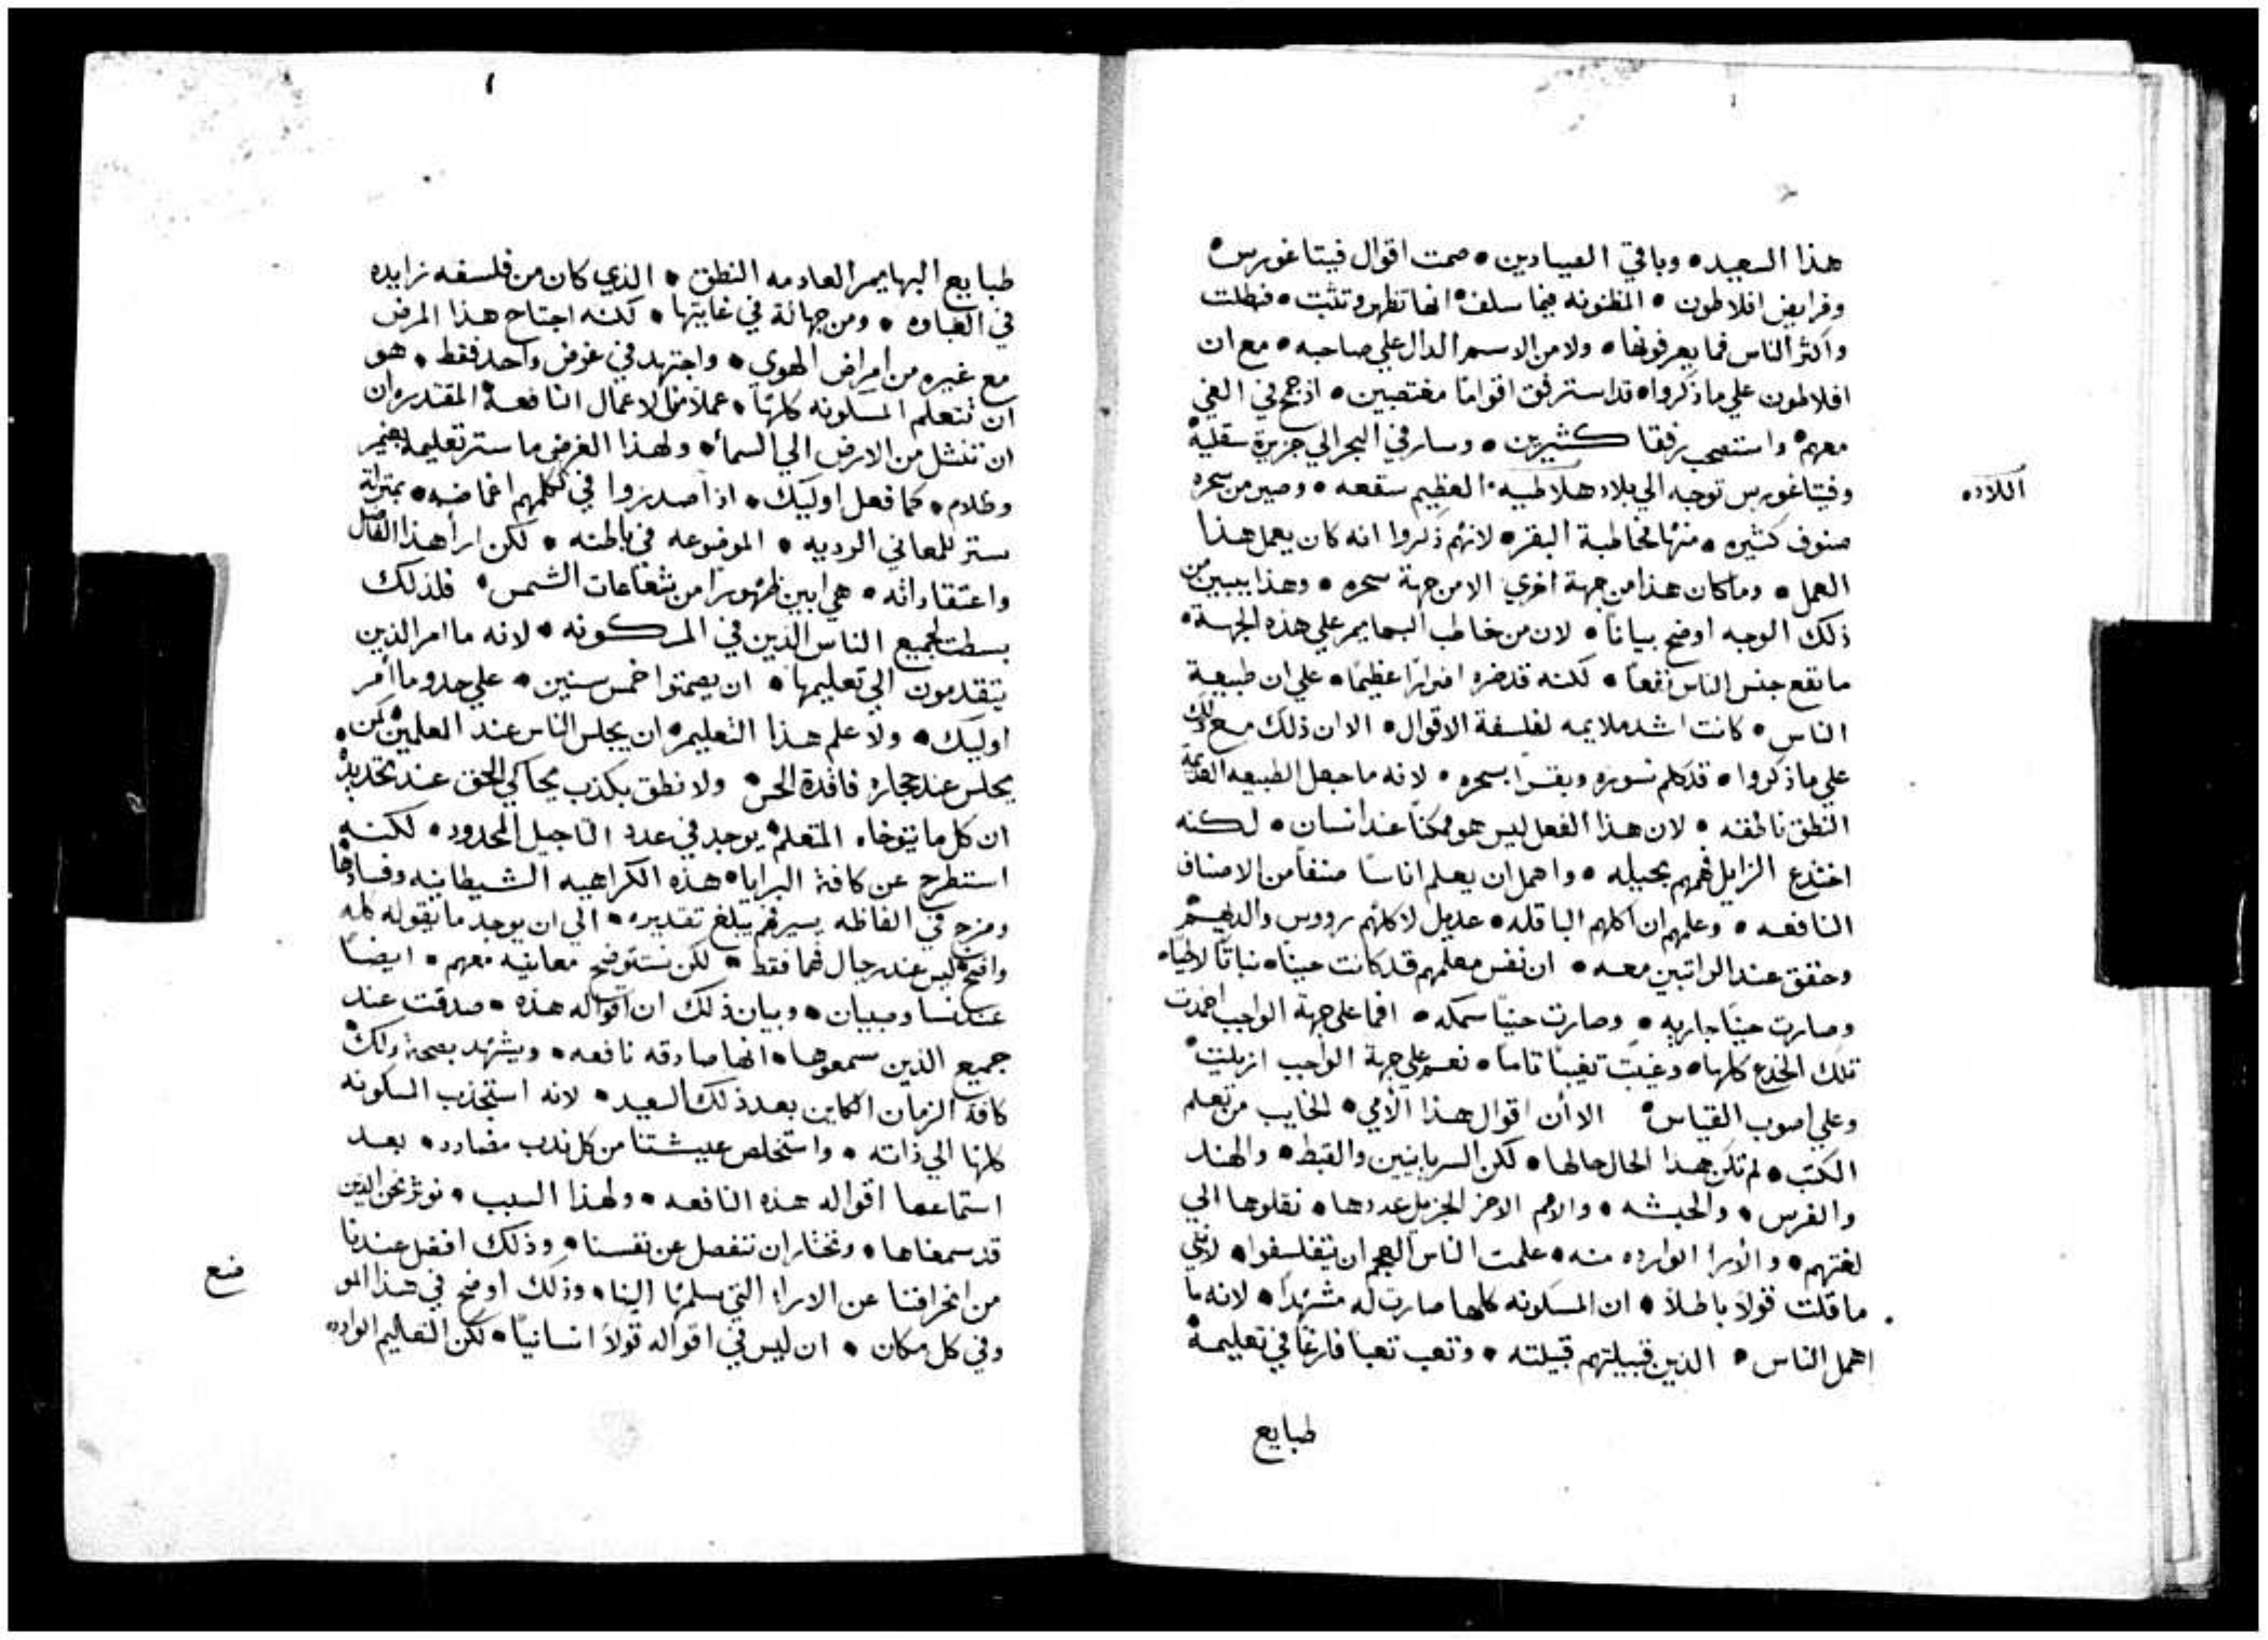 هذا السعيد • وباقي الصيادين • صمت اقوال فيتاغورس •
وفرايض افلاطون • المظنونه فيما سلف • انها تظهر وتثبت • فبطلت
واكثر الناس فما يعرفونها • ولا من الاسم الدال علي صاحبه • مع ان
افلاطون علي ما ذكروا • قد استرفق اقواما مغتصبين • اذ في
معهم • واستصحب رفقا كثيرين • وسار في البحر الي جزيرة سقلية
وفيتاغورس توجه الي بلاد هلاطيه • العظيم سقعه • وصير من سحره
اللاده
صنوف كثيره • منها مخاطبة البقر • لانهم ذكروا انه كان يعمل هذا
العمل • وما كان هذا من جهة اخري الا من جهة سحره • وهذا يبين من
ذلك الوجه اوضح بيانا • لان من خاطب البهايم علي هذه الجهة •
ما نفع جنس الناس نفعا • لكنه قد ضره اضرارا عظيما • علي ان طبيعة
الناس • كانت اشد ملايمه لفلسفة الاقوال • الا ان ذلك مع ذلك
علي ما ذكروا • قد كلم نسوره وبقرا بسحره • لانه ما جعل الطبيعه العديمة
النطق ناطقه • لان هذا الفعل ليس هو ممكنا عند انسان • لكنه
اختدع الزايل فهمهم بحيله • واهمل ان يعلم اناسا صنفا من الاصناف
النافعه • وعلمهم ان اكلهم الباقله • عديل لاكلهم رووس والديهم
وحقق عند الراتبين معه • ان نفس معلمهم قد كانت حينا • نباتا لاحياه
وصارت حينا جاريه • وصارت حينا سمكه • افما علي جهة الواجب اخمدت
تلك الخدع كلها • وغيبت تغيبا تاما • نعم علي جهة الواجب ازيلت •
وعلي اصوب القياس • الا أن اقوال هذا الأمي • الخايب من تعلم
الكتب • لم تكن هذا الحال حالها • لكن السريانيين والقبط • والهند
والفرس • والحبشه • والامم الاخر الجزيل عددها • نقلوها الي
لغتهم • والأرا الوارده منه • علمت الناس العجم ان يتفلسفوا • لانني
ما قلت قولا باطلا • ان المسكونه كلها صارت له مشهدا • لانه ما
اهمل الناس • الذين قبيلتهم قبيلته • وتعب تعبا فارغا في تعليمه
طبايع
طبايع البهايم العادمه النطق • الذي كان من فلسفه زايده
في الغباوه • ومن جهالة في غايتها • لكنه اجتاح هذا المرض
مع غيره من امراض الهوي • واجتهد في غرض واحد فقط • هو
ان تتعلم المسكونه كلها • عملا من الاعمال النافعة المقتدره ان
ان تنشل من الارض الي السما • ولهذا الغرض ما ستر تعليمه بغيم
وظلام • كما فعل اوليك • اذا صدروا في تكلمهم اغماضه • بمنزلة
ستر للمعاني الرديه • الموضوعه في باطنه • لكن ارا هذا الفاضل
واعتقاداته • هي ابين ظهورا من شعاعات الشمس • فلذلك
بسطت لجميع الناس الذين في المسكونه • لانه ما امر الذين
يتقدمون الي تعليمها • ان يصمتوا خمس سنين • علي حدو ما أمر
اوليك • ولا علم هذا التعليم • ان يجلس الناس عند المعلمين كمن •
يجلس عند حجاره فاقدة الحس • ولا نطق بكذب يحاكي الحق عند تحديده
ان كل ما يتوخاه المتعلم • يوجد في عدد التاجيل المحدود • لكنه
استطرح عن كافة البرايا • هذه الكراهيه الشيطانيه وفسادها
ومزج في الفاظه يسير فهم يبلغ تقديره • الي ان يوجد ما يقوله كله
واضح • ليس عند رجال فهما فقط • لكن نستوضح معانيه معهم • ايضا
عند نسا وصبيان • وبيان ذلك ان اقواله هذه • صدقت عند
جميع الذين سمعوها • انها صادقه نافعه • ويشهد بصحة ذلك •
كافة الزمان الكاين بعد ذلك السعيد • لانه استجذب المسكونه
كلها الي ذاته • واستخلص عيشتنا من كل ندب مضادد • بعد
استماعها اقواله هذه النافعه • ولهذا السبب • نوثر نحن الذين
قد سمعناها • ونختار ان ننفصل عن نفسنا • وذلك افضل عندنا
من انحرافنا عن الارا • التي سلمها الينا • وذلك اوضح في هذا المو
ضع
وفي كل مكان • ان ليس في اقواله قولا انسانيا • لكن التعاليم الوارده